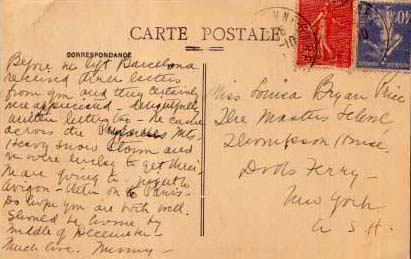 CARTE POSTALE
CORRESPONDANCE
Before we left Barcelona
received three letters
from you and they certainly
were appreciated - delightfully
written letters too - We came
across the Pyrenees Mts.
Heavy snow storm and
we were lucky to get thru.
We are going to - night to
Avignon - then on to Paris -
Do hope you are both well.
Should be home by
middle of December -
Much love. Mummy -
Miss Louisa Bryan
The Masters School
Thompson House
Dobbs Ferry -
New York
U. S. A.